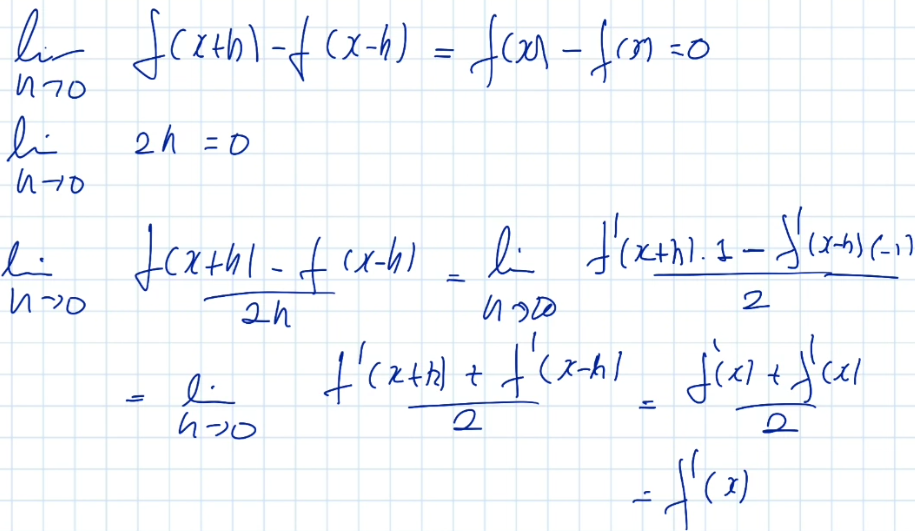 lim h→0 f(x+h) - f(x-h) = f(x) - f(x) = 0
lim h→0 2h = 0
lim h→0 (f(x+h) - f(x-h))/2h = lim h→∞ (f'(x+h).1 - f'(x-h)(-1))/2
= lim h→0 (f'(x+h) + f'(x-h))/2 = (f'(x) + f'(x))/2
= f'(x)